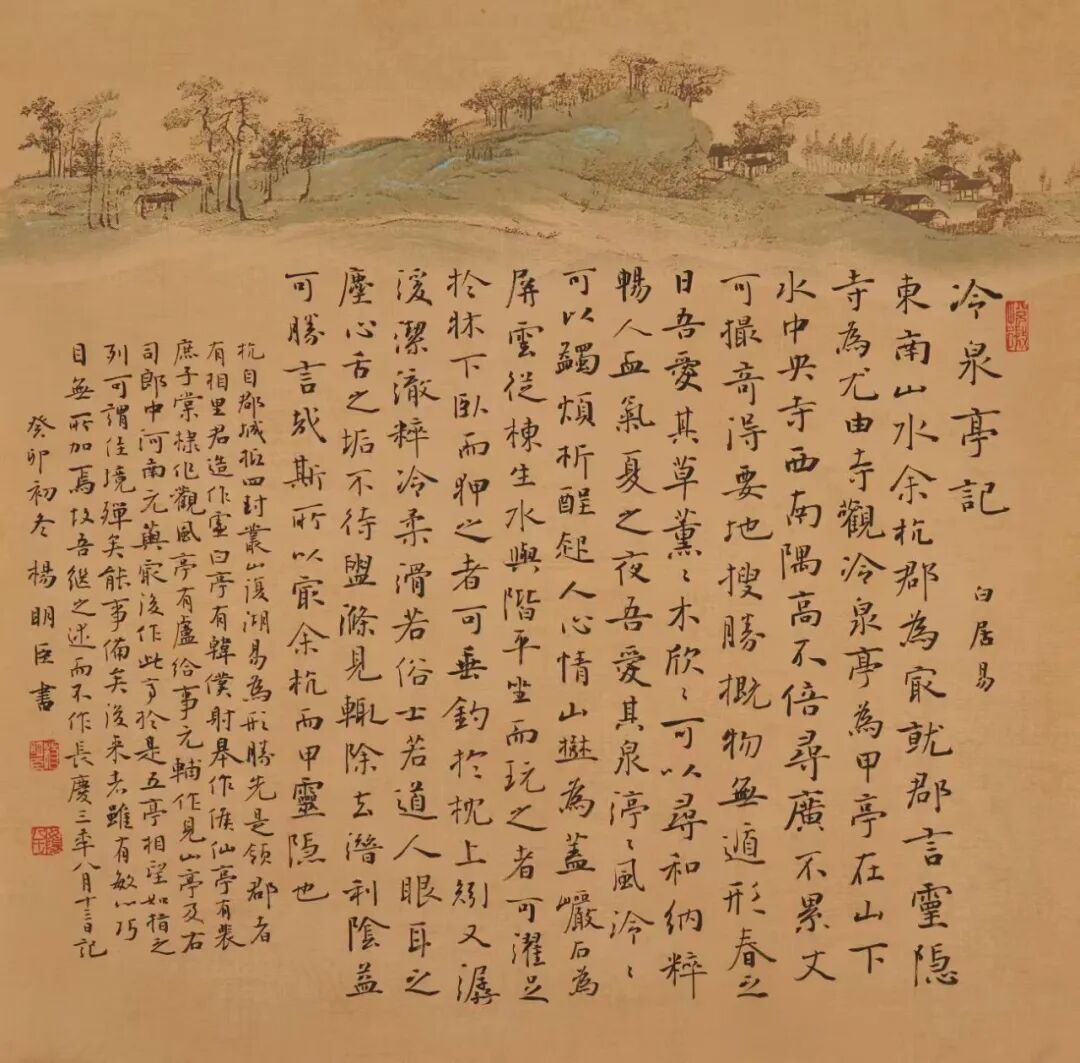 冷泉亭記 白居易
東南山水余杭郡為冣就郡言靈隱
寺為尤由寺觀冷泉亭為甲亭在山下
水中央寺西南隅高不倍尋廣不累丈
可撮奇得要地搜勝概物無遁形春之
日吾愛其草薰〻木欣〻可以尋和納粹
暢人血氣夏之夜吾愛其泉渟〻風泠〻
可以蠲煩析酲起人心情山樾為蓋巖石為
屏雲從棟生水與階平坐而玩之者可濯足
於牀下臥而狎之者可垂釣於枕上矧又潺
湲潔澈粹冷柔滑若俗士若道人眼耳之
塵心舌之垢不待盥滌見輒除去潛利陰益
可勝言哉斯所以冣余杭而甲靈隱也
杭自郡城抵四封叢山復湖易為形勝先是領郡者
有相里君造作虛白亭有韓僕射皋作候仙亭有裴
庶子棠棣作觀風亭有盧給事元輔作見山亭及右
司郎中河南元藇冣後作此亭於是五亭相望如指之
列可謂佳境殫矣能事備矣後来者雖有敏心巧
目無所加焉故吾继之述而不作長慶三年八月十三日記
癸卯初冬楊明臣書